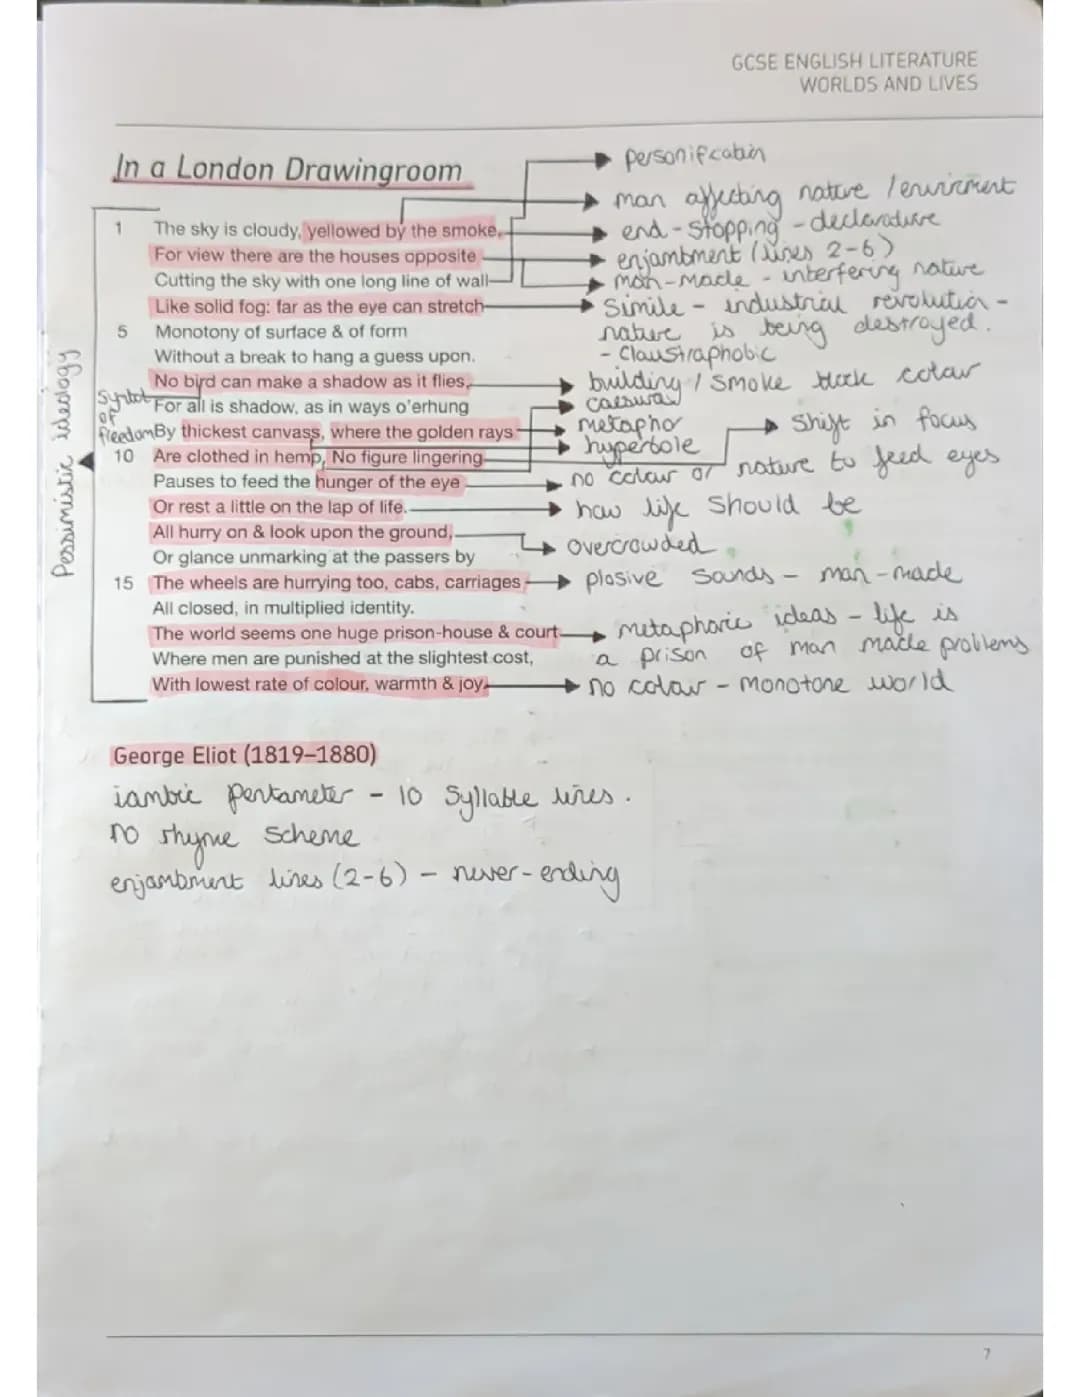 GCSE ENGLISH LITERATURE
WORLDS AND LIVES
In a London Drawingroom
1 The sky is cloudy, yellowed by the smoke.
For view there are the houses opposite
Cutting the sky with one long line of wall
Like solid fog: far as the eye can stretch
5 Monotony of surface & of form
Without a break to hang a guess upon.
No bird can make a shadow as it flies,
For all is shadow, as in ways o'erhung
By thickest canvass, where the golden rays
10 Are clothed in hemp. No figure lingering
Pauses to feed the hunger of the eye
Or rest a little on the lap of life.
All hurry on & look upon the ground,
Or glance unmarking at the passers by
15 The wheels are hurrying too, cabs, carriages
All closed, in multiplied identity.
The world seems one huge prison-house & court
Where men are punished at the slightest cost,
With lowest rate of colour, warmth & joy.
personification
man affecting nature / enviroment
end-stopping - declarative
enjambment (lines 2-6)
man-made - interfering nature
Simile - industrial revolution -
nature is being destroyed.
- Claustraphobic
building / smoke block colour
caesura
metaphor
hyperbole
Shift in focus
no colour or nature to feed eyes
how life should be
overcrowded
plosive sounds - man-made
metaphoric ideas - life is
a prison of man made problems
no colour - monotone world
Symbol
of
freedom
Pessimistic ideology
George Eliot (1819–1880)
iambic pentameter - 10 Syllable lines.
no rhyme scheme
enjambment lines (2-6) - never-ending
7